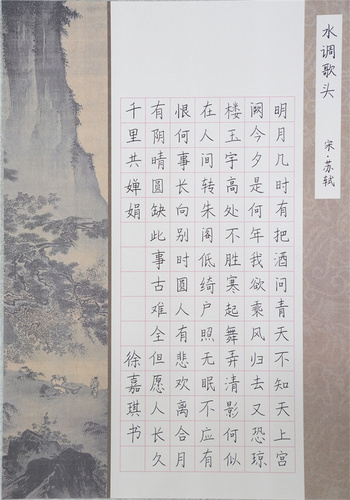 水调歌头
宋·苏轼
明月几时有把酒问青天不知天上宫
阙今夕是何年我欲乘风归去又恐琼
楼玉宇高处不胜寒起舞弄清影何似
在人间转朱阁低绮户照无眠不应有
恨何事长向别时圆人有悲欢离合月
有阴晴圆缺此事古难全但愿人长久
千里共婵娟 徐嘉琪书